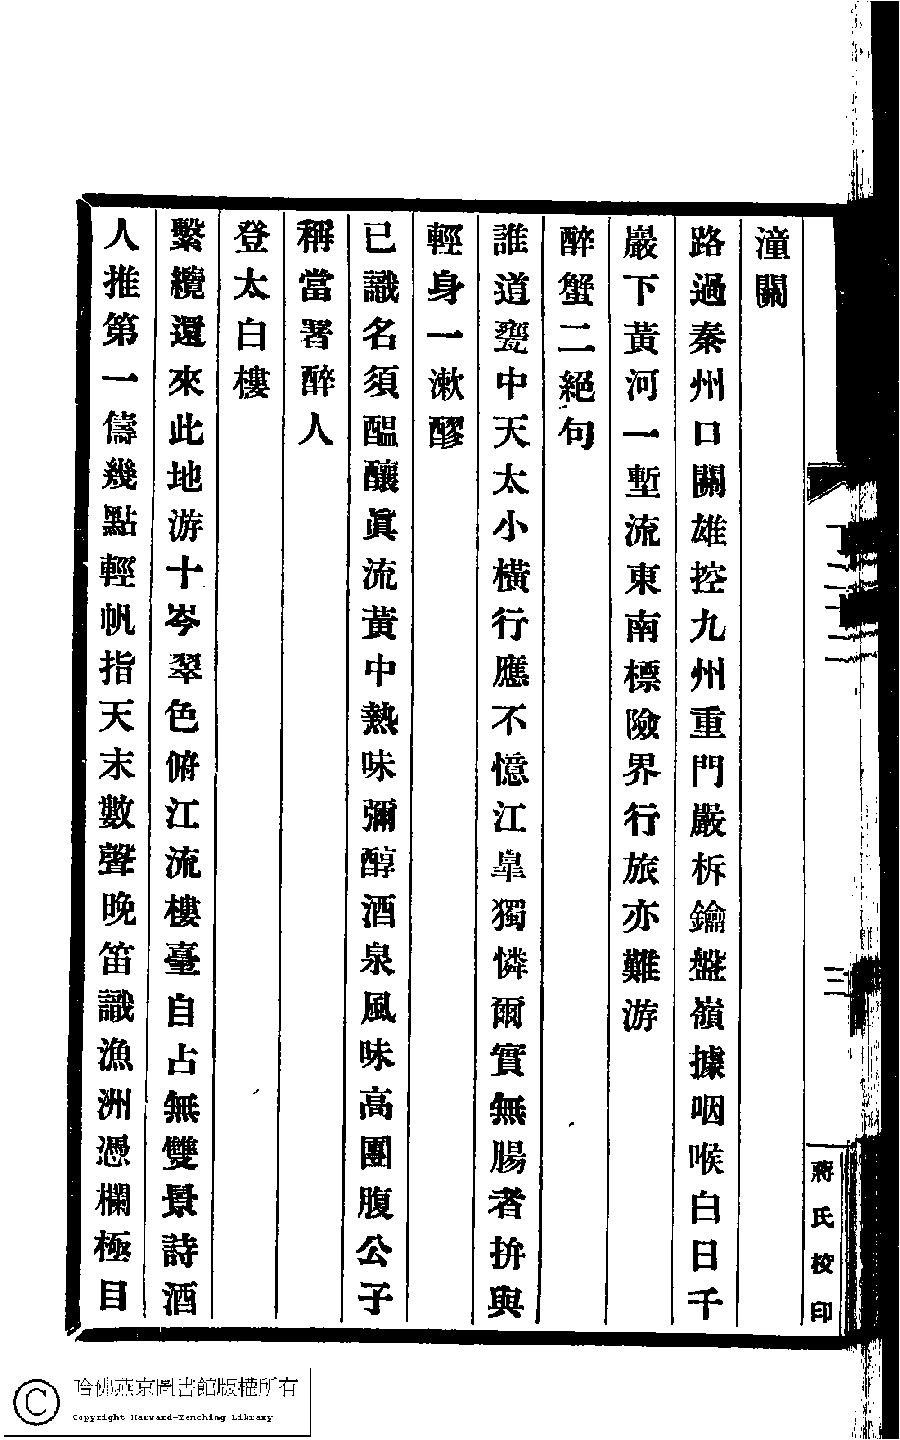 潼關
路過秦州口關雄控九州重門嚴柝鑰盤嶺據咽喉白日千
巖下黃河一塹流東南標險界行旅亦難游
醉蟹二絕句
誰道甕中天太小橫行應不憶江臯獨憐爾實無腸者拚與
輕身一漱醪
已識名須醖釀眞流黃中熱味彌醇酒泉風味高團腹公子
稱當署醉人
登太白樓
繫纜還來此地游十岑翠色俯江流樓臺自占無雙景詩酒
人推第一儔幾點輕帆指天末數聲晚笛識漁洲憑欄極目
三
蔣氏校印
哈佛燕京圖書館版權所有
Copyright Harvard-Yenching Library